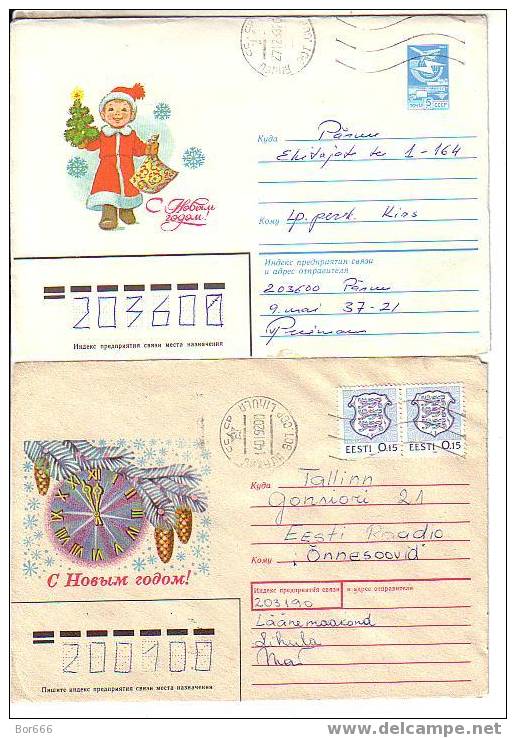 ПОЧТА 5 СССР
Куда Pärnu
Ehitajate te 1-164
С Новым
годом!
Кому
Индекс предприятия связи
и адрес отправителя
203600 Pärnu
9. mai 37-21
203600
Индекс предприятия связи места назначения
CCCP LIHULA
EESTI 0.15 EESTI 0.15
Куда Tallinn
21
Eesti Raadio
Кому „Õnnesoovid"
С Новым годом!
Индекс предприятия связи и адрес отправителя
203190
Läänemaakond
Lihula
200100
Пишите индекс предприятия связи места назначения
Bor666
delcampe.net